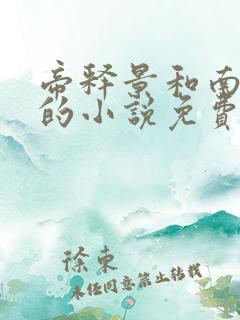 帝释景和南
的小说免费
徐东
未经同意禁止转载